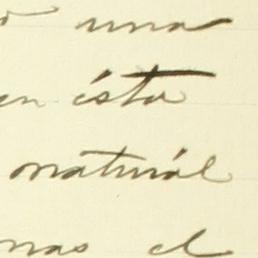 una
en ésta
naturál
mas el